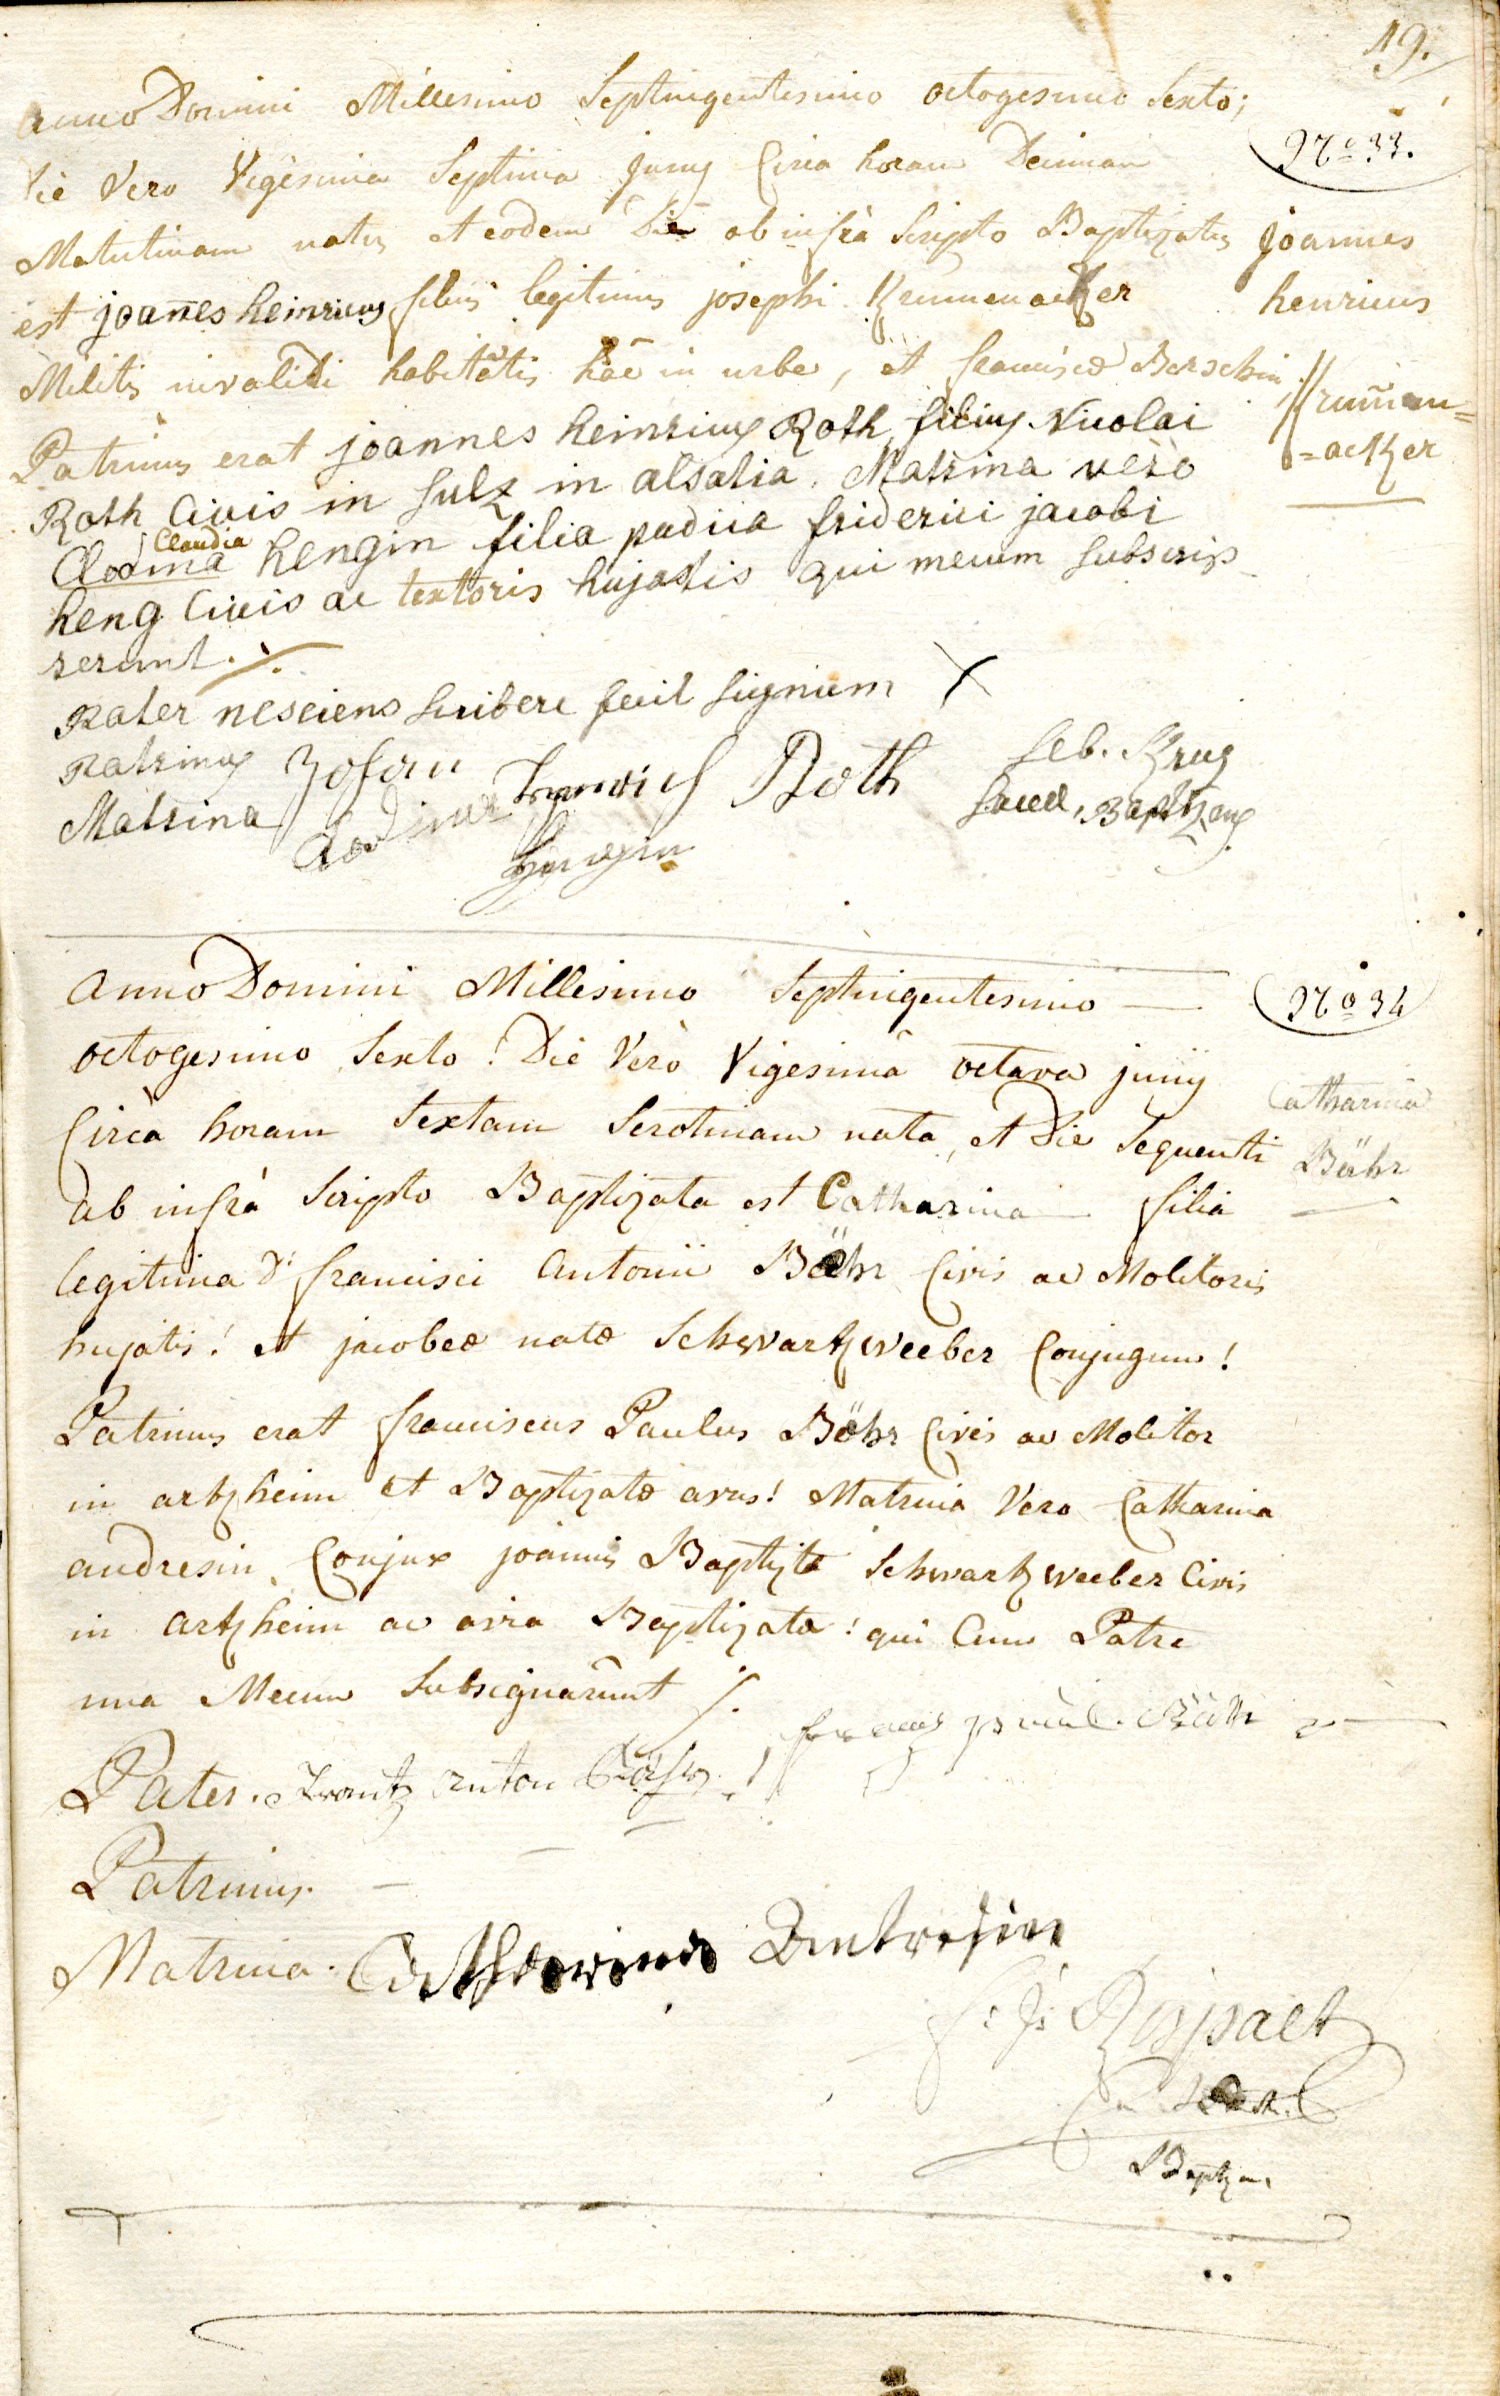 19.
Anno Domini Millesimo Septingentesimo octogesimo Sexto;
Nro 33.
Die Vero Vigesima Septima Junij Circa horam Decimam
Matutinam natus et eodem Die ab infrà Scripto Baptizatus
est joañes heinricus filius legitimus josephi Krummenacker
Militis invalidi habitātis hâc in urbe, et franciscæ Berschin
joannes
henricus
Krum̄en=
=acker
Patrinus erat joannes heinricus Roth filius Nicolai
Roth Civis in Sulz in alsatia. Matrina verò
Claudia
hengin filia pudica friderici jacobi
heng Civis ac textoris hujatis qui mecum subscrip
serunt ./.
Pater nesciens scribere fecit signum X
Patrinus Johan Henrich Roth
Seb. Krug
Sacell. Baptizans
Matrina hengin
Anno Domini Millesimo Septingentesimo
Nro 34
octogesimo Sexto! Die Verò Vigesimâ octava junij
Circà horam Sextam Serotinam nata, et Die Sequenti
ab infrà Scripto Baptizata est Catharina filia
Catharina
Bähr
legitima Di francisci Antonii Bähr Civis ac Molitoris
hujatis! et jacobeæ natæ Schwartzweeber Conjugum!
Patrinus erat franciscus Paulus Bähr Civis ac Molitor
in artzheim et Baptizatæ avus! Matrina Vero Catharina
andresin Conjux joannis Baptistæ Schwartzweeber Civis
in Artzheim ac avia Baptizatæ! qui Cum Patre
una Mecum Subsignarûnt ./.
frantz paul Bähr
Pater. Frantz Anton Bähr
Patrinus.
Matrina. Catharina Antresin
Baptzan.